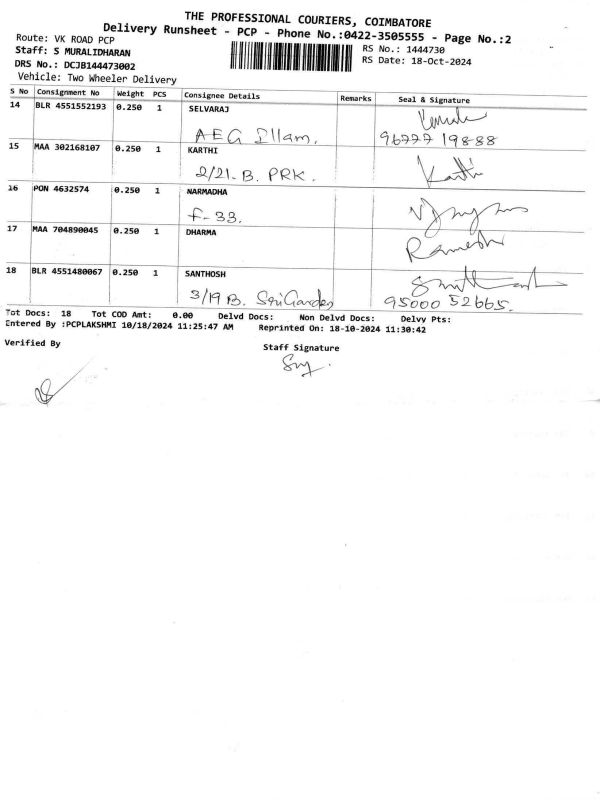 THE PROFESSIONAL COURIERS, COIMBATORE
Delivery Runsheet - PCP - Phone No.:0422-3505555 - Page No.:2
Route: VK ROAD PCP
RS No.: 1444730
Staff: S MURALIDHARAN
RS Date: 18-Oct-2024
DRS No.: DCJB144473002
Vehicle: Two Wheeler Delivery
S No Consignment No Weight PCS Consignee Details Remarks Seal & Signature
14 BLR 4551552193 0.250 1 SELVARAJ
AEG Illam. 96777 19888
15 MAA 302168107 0.250 1 KARTHI
2/21-B. PRK. Karthi
16 PON 4632574 0.250 1 NARMADHA
F-33.
17 MAA 704890045 0.250 1 DHARMA Ramesh
18 BLR 4551480067 0.250 1 SANTHOSH
3/19 B. Sri Garden 95000 52665.
Tot Docs: 18 Tot COD Amt: 0.00 Delvd Docs: Non Delvd Docs: Delvy Pts:
Entered By :PCPLAKSHMI 10/18/2024 11:25:47 AM Reprinted On: 18-10-2024 11:30:42
Verified By Staff Signature